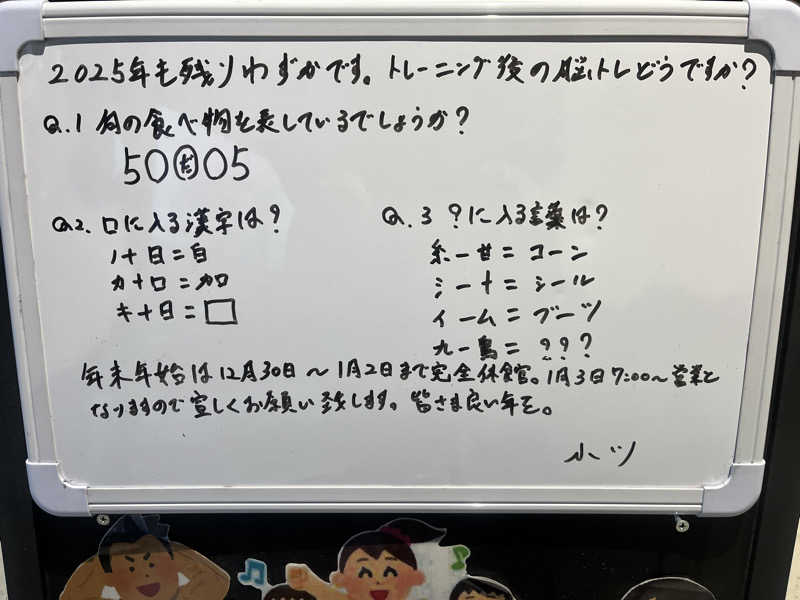 2025年も残りわずかです。トレーニング後の脳トレどうですか?
Q.1 何の食べ物を表しているでしょうか?
50だ05
Q2. 口に入る漢字は?
ノ+日=白
カ+ロ=加
キ+日=□
Q.3 ?に入る言葉は?
糸ー甘=コーン
シー十=シール
イーム=ブーツ
九ー鳥=???
年末年始は12月30日〜1月2日まで完全休館。1月3日7:00〜営業と
なりますので宜しくお願い致します。皆さま良い年を。